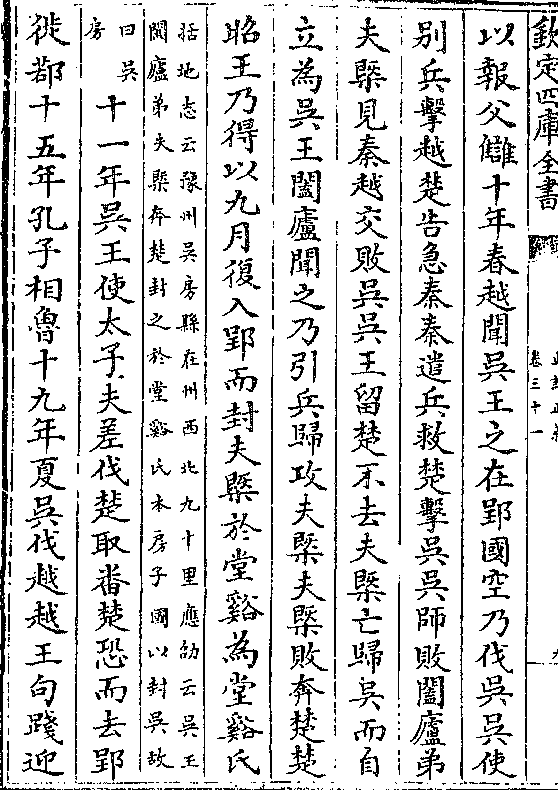 欽定四庫全書
卷三十一
以報父讎十年春越聞吳王之在郢國空乃伐吳吳使
别兵擊越楚告急秦秦遣兵救楚擊吳吳師敗闔廬弟
夫槩見秦越交敗吳吳王留楚不去夫槩亡歸吳而自
立為吳王闔廬聞之乃引兵歸攻夫槩夫槩敗奔楚楚
昭王乃得以九月復入郢而封夫槩於堂谿為堂谿氏
括地志云豫州吳房縣在州西北九十里應劭云吳王
闔廬弟夫槩奔楚封之於堂谿氏本房子國以封吳故
曰吳
房
十一年吳王使太子夫差伐楚取番楚恐而去郢
徙鄀十五年孔子相魯十九年夏吳伐越越王句踐迎